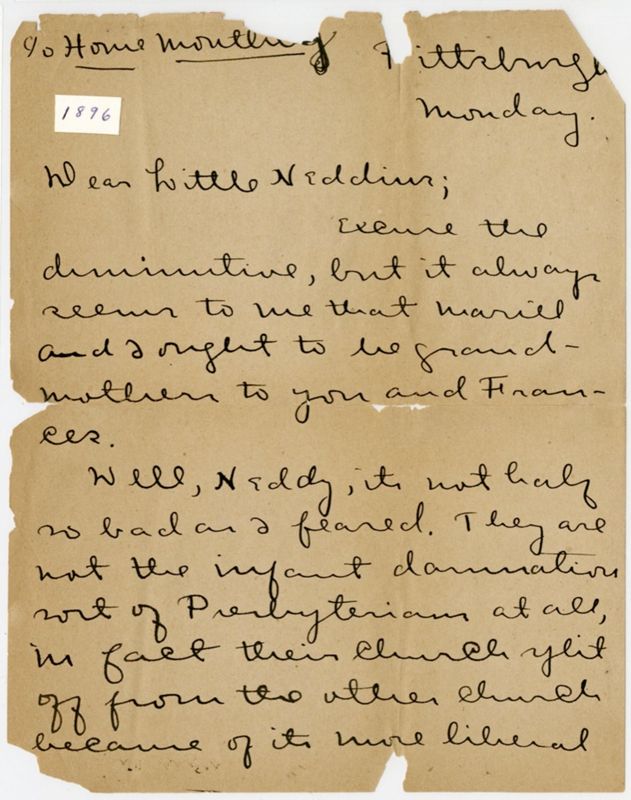 c/o Home Monthly
Pittsburgh
Monday.
1896
Dear Little Neddins;
Excuse the
diminutive, but it always
seems to me that Mariel
and I ought to be grand-
mothers to you and Fran-
ces.
Well, Neddy, its not half
so bad as I feared. They are
not the infant damnation
sort of Presbyterians at all,
in fact their church split
off from the other church
because of its more liberal